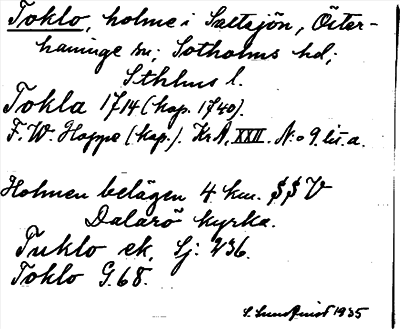 Toklo, holme i Saltsjön, Öster-
haninge sn; Sotholms hd;
Sthlms l.
Tokla 1714 (kop. 1740).
F. W. Hoppe (kop.). Kr. A. XXII. N:o 9. lit. a.
Holmen belägen 4 km. SSV
Dalarö kyrka.
Tuklo ek. Sj: 236.
Toklo G. 68.
S. Sundqvist 1935